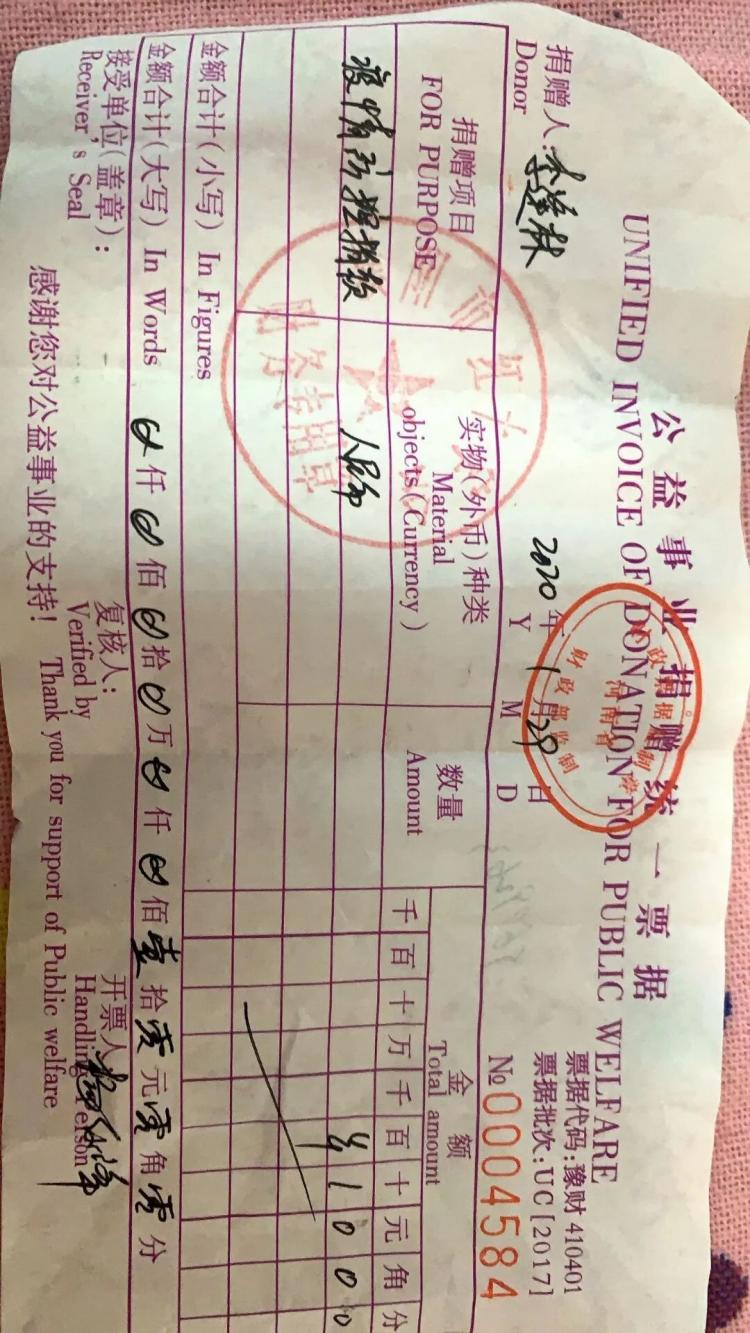 公益事业捐赠统一票据
UNIFIED INVOICE OF DONATION FOR PUBLIC WELFARE
财政部监制
河南省
票据代码:豫财 410401
票据批次:UC [2017]
捐赠人:李莲林
Donor
2020 年 1 月 29 日
Y M D
№ 0004584
捐赠项目
FOR PURPOSE
实物(外币)种类
Material
objects(Currency)
数量
Amount
金额
Total amount
千 百 十 万 千 百 十 元 角 分
疫情防控捐款 人民币 ¥ 1 0 0 0
金额合计(小写) In Figures
金额合计(大写) In Words 仟 佰 拾 万 仟 佰 壹 拾 零 元 零 角 零 分
接受单位(盖章):
Receiver's Seal
复核人:
Verified by
开票人
Handling Person
感谢您对公益事业的支持! Thank you for support of Public welfare